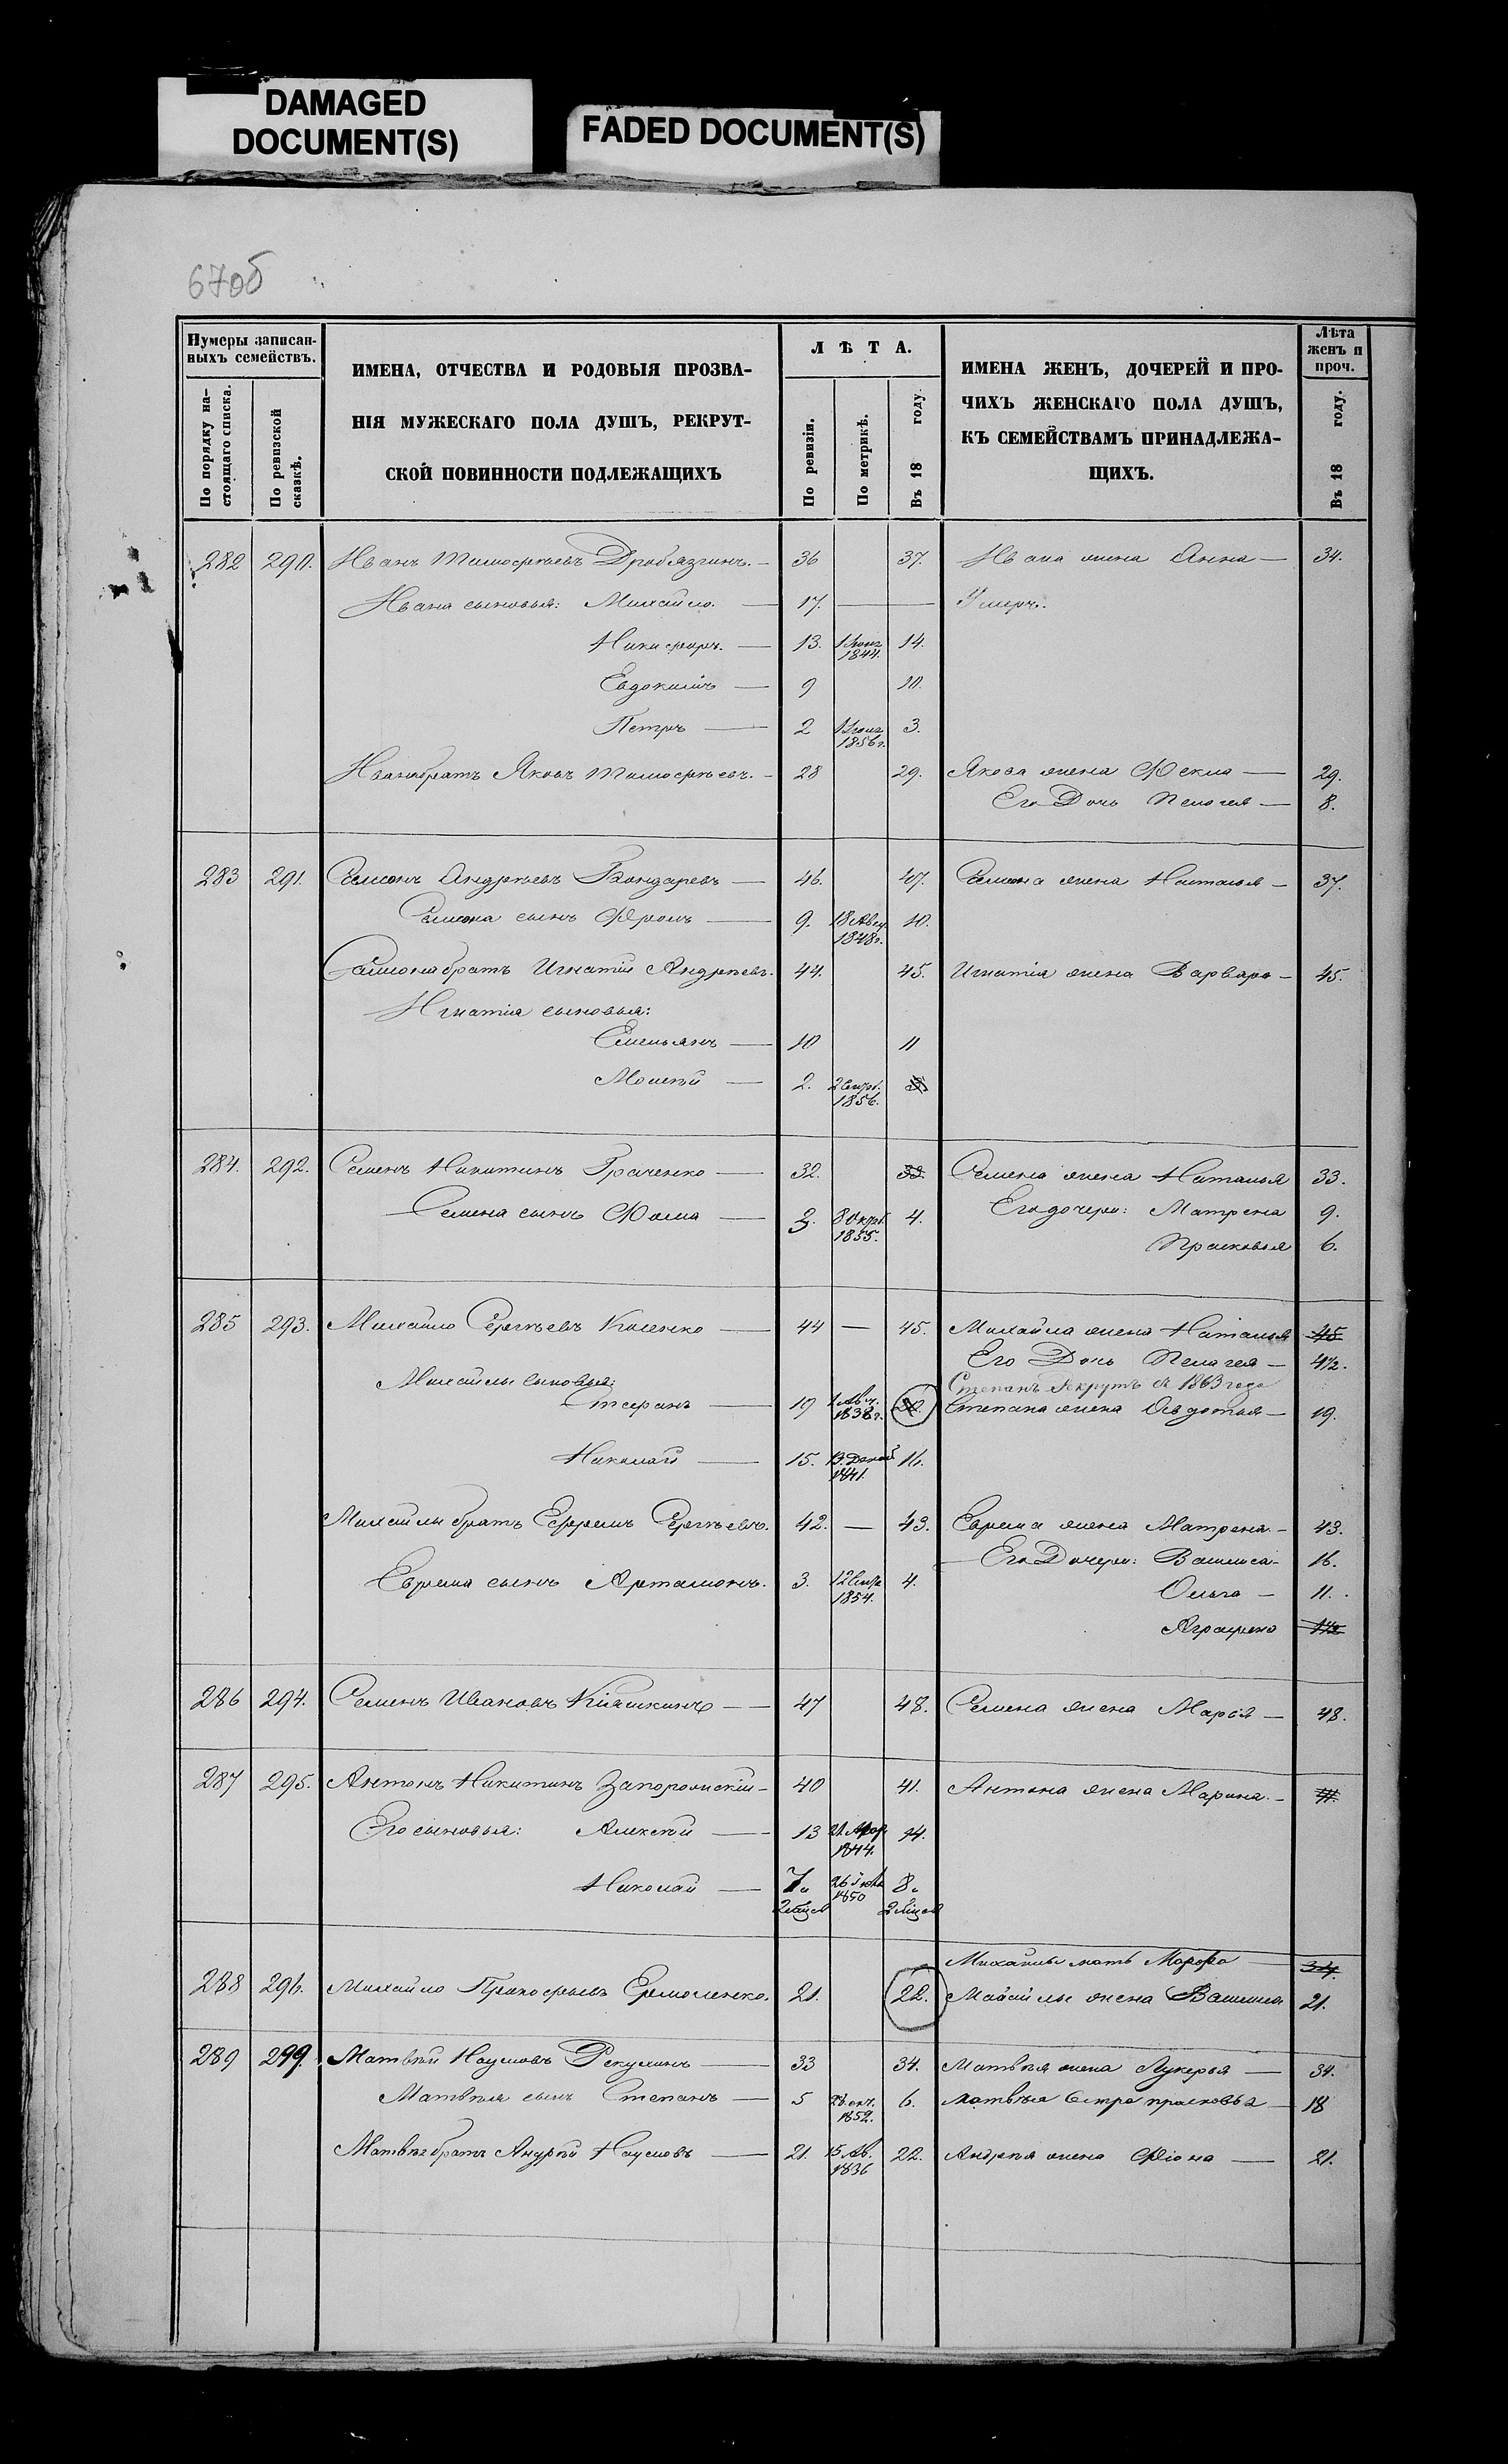 DAMAGED
DOCUMENT(S)
FADED DOCUMENT(S)
67об
Нумеры записан-
ныхъ семействъ.
По порядку на-
стоящаго списка.
По ревизской
сказкѣ.
ИМЕНА, ОТЧЕСТВА И РОДОВЫЯ ПРОЗВА-
НІЯ МУЖЕСКАГО ПОЛА ДУШЪ, РЕКРУТ-
СКОЙ ПОВИННОСТИ ПОДЛЕЖАЩИХЪ
ЛѢТА.
По ревизіи.
По метрикѣ.
Въ 18 году.
ИМЕНА ЖЕНЪ, ДОЧЕРЕЙ И ПРО-
ЧИХЪ ЖЕНСКАГО ПОЛА ДУШЪ,
КЪ СЕМЕЙСТВАМЪ ПРИНАДЛЕЖА-
ЩИХЪ.
Лѣта
женъ и
проч.
Въ 18 году.
282 290. Иванъ Тимофѣевъ Дробязгинъ. — 36 37. Ивана жена Анна — 34.
Ивана сыновья: Михайло. — 17. — Умеръ.
Никифоръ. — 13. 1844. 14.
Евдокимъ — 9 10.
Петръ — 2 1856г. 3.
Ивана братъ Яковъ Тимофѣевъ. — 28 29. Якова жена Фекла — 29.
Его Дочь Пелагея — 8.
283 291. Самсонъ Андрѣевъ Бондаревъ — 46. 47. Самсона жена Наталья — 37.
Самсона сынъ Фролъ — 9. 18 Авг. 1848г. 10.
Самсона братъ Игнатій Андрѣевъ. 44. 45. Игнатія жена Варвара — 45.
Игнатія сыновья:
Емельянъ — 10 11
Моисѣй — 2. 2 Сентб. 1856.
284. 292. Семенъ Никитинъ Граченко — 32. 33. Семена жена Наталья 33.
Семена сынъ Фома — 3. 8 Октб. 1855. 4. Его дочери: Матрена 9.
Прасковья 6.
285 293. Михайло Сергѣевъ Косенко — 44 — 45. Михайла жена Наталья 45
Его Дочь Пелагея — 4½.
Михайлы сыновья: Степанъ Рекрутъ съ 1863 года
Стефанъ — 19 1 Авг. 1838г. 20. Степана жена Авдотья — 19.
Николай — 15. 1841. 16.
Михайлы братъ Ефремъ Сергѣевъ. 42. — 43. Ефрема жена Матрена. — 43.
Ефрема сынъ Артамонъ. 3. 12 Сентб 1854. 4. Его Дочери: Васлиса — 16.
Ольга — 11.
Аграфена 1½
286 294. Семенъ Ивановъ Кіяшкинъ — 47 48. Семена жена Марія — 48.
287 295. Антонъ Никитинъ Запорожскій — 40 41. Антона жена Марина. — 41.
Его сыновья: Алексѣй — 13 1844. 14.
Николай — 7. 26 1850 8.
Михайлы мать Марфа — 34.
288 296. Михайло Прокофьевъ Ермоленко. 21. 22. Михайлы жена Васлиса 21.
289 299. Матвѣй Наумовъ Рекунинъ — 33 34. Матвѣя жена Лукерья — 34.
Матвѣя сынъ Степанъ — 5 28. окт. 1852. 6. Матвѣя сестра прасковья 18
Матвѣя братъ Андрѣй Наумовъ — 21. 15. Ав. 1836 22. Андрѣя жена Фіона — 21.